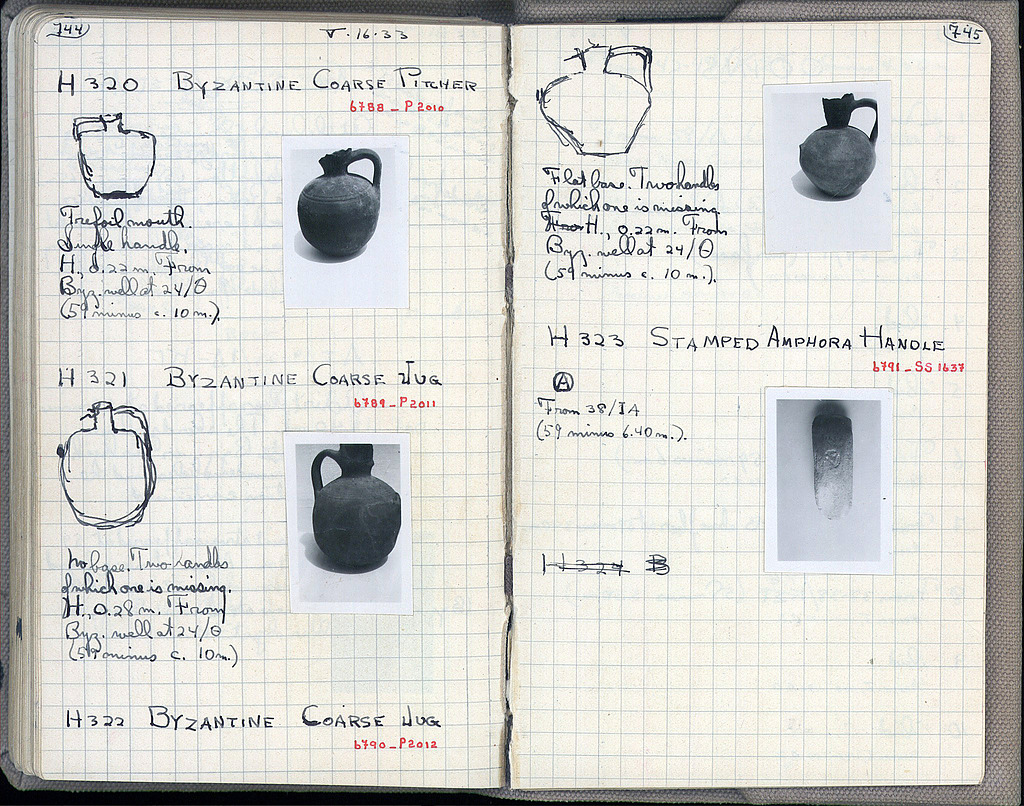 744
V·16·33
H 320 BYZANTINE COARSE PITCHER
b788_P2010
Trefoil mouth.
Single handle.
H., 0.22 m. From
Byz. well at 24/Θ
(59 minus c. 10 m.).
H 321 BYZANTINE COARSE JUG
b789_P2011
No base. Two handles
of which one is missing.
H., 0.28 m. From
Byz. well at 24/Θ
(59 minus c. 10 m.)
H 322 BYZANTINE COARSE JUG
b790_P2012
745
Flat base. Two handles
of which one is missing.
H., 0.22 m. From
Byz. well at 24/Θ
(59 minus c. 10 m.).
H 323 STAMPED AMPHORA HANDLE
b791_SS 1637
A
From 38/IA
(59 minus 6.40 m.).
H 324 B